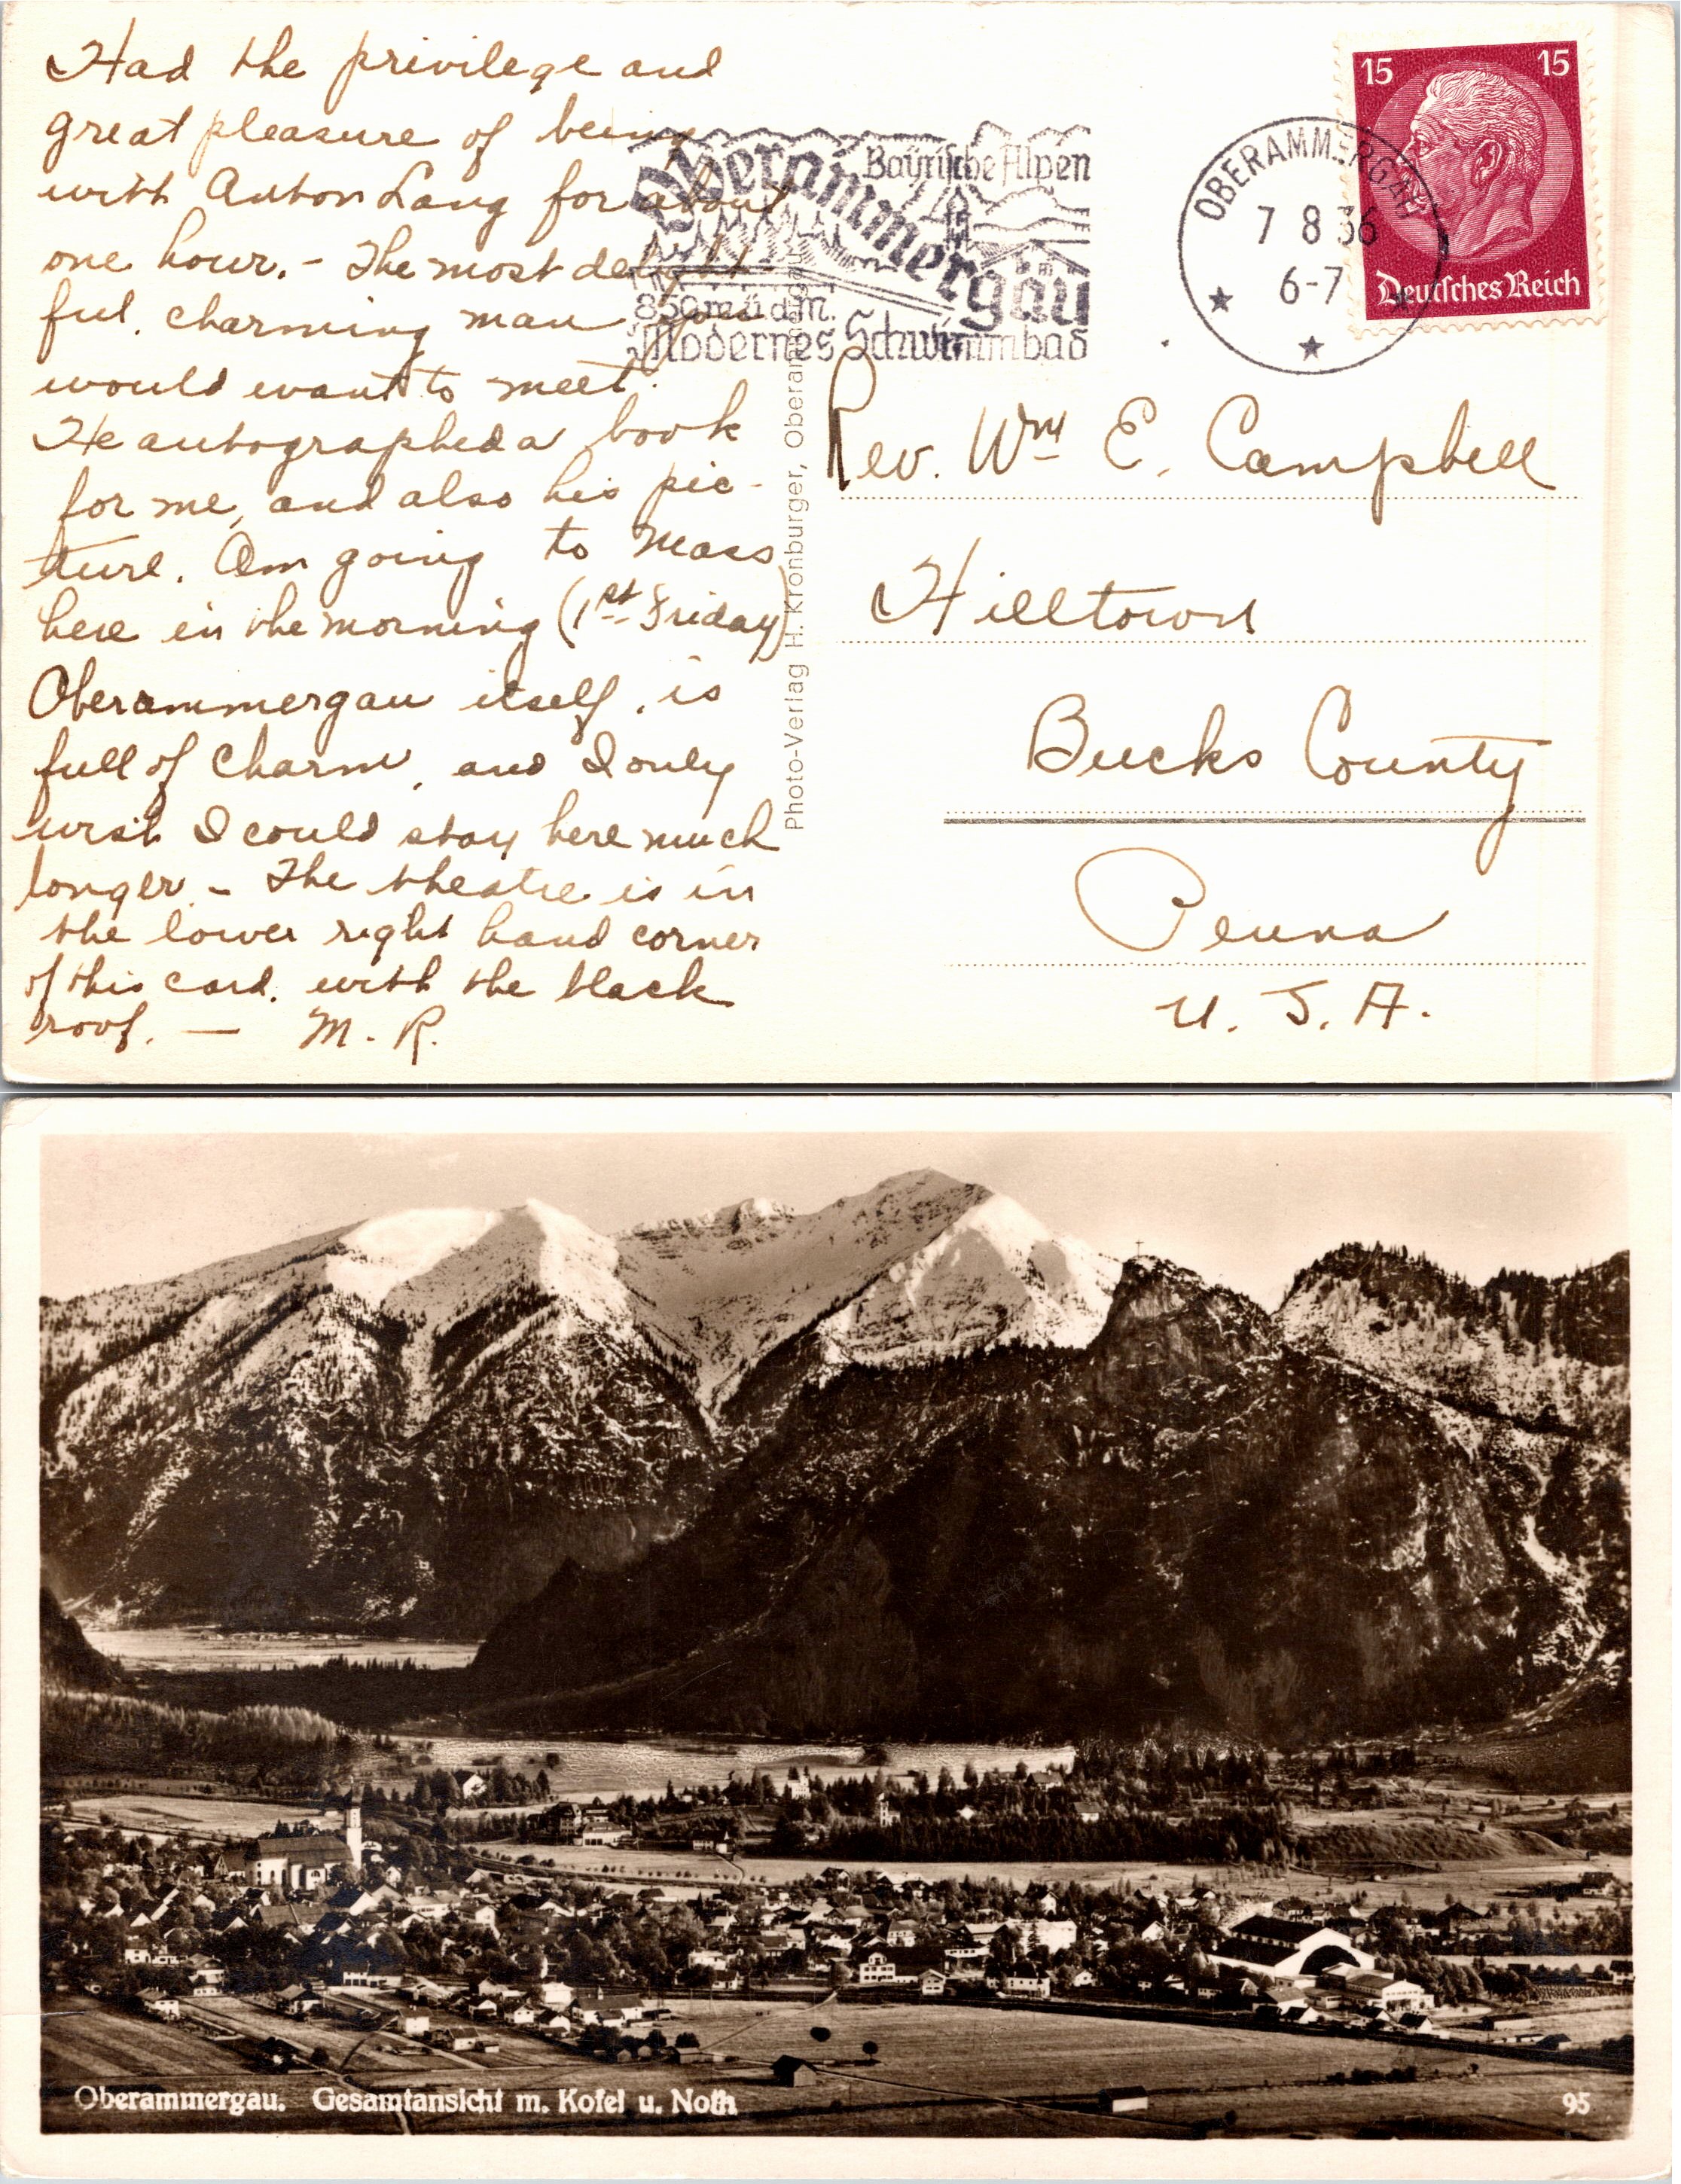 Had the privilege and
great pleasure of being
with Anton Lang for about
one hour. - The most delight
ful, charming man you
would want to meet.
He autographed a book
for me, and also his pic-
ture. Am going to Mass
here in the morning (1st Friday)
Oberammergau itself, is
full of charm, and I only
wish I could stay here much
longer. - The theatre is in
the lower right hand corner
of this card, with the black
roof. — M. R.
Oberammergau
Bayrische Alpen
850 m ü. d. M.
Modernes Schwimmbad
OBERAMMERGAU
7 8 36
6-7
15 15
Deutsches Reich
Photo-Verlag H. Kronburger, Oberammergau
Rev. Wm E. Campbell
Hilltown
Bucks County
Penna
U. S. A.
Oberammergau. Gesamtansicht m. Kofel u. Noth
95